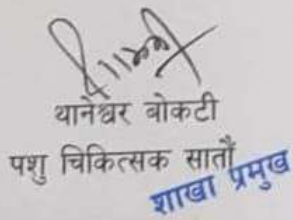 थानेश्वर बोकटी
पशु चिकित्सक सातौं
शाखा प्रमुख